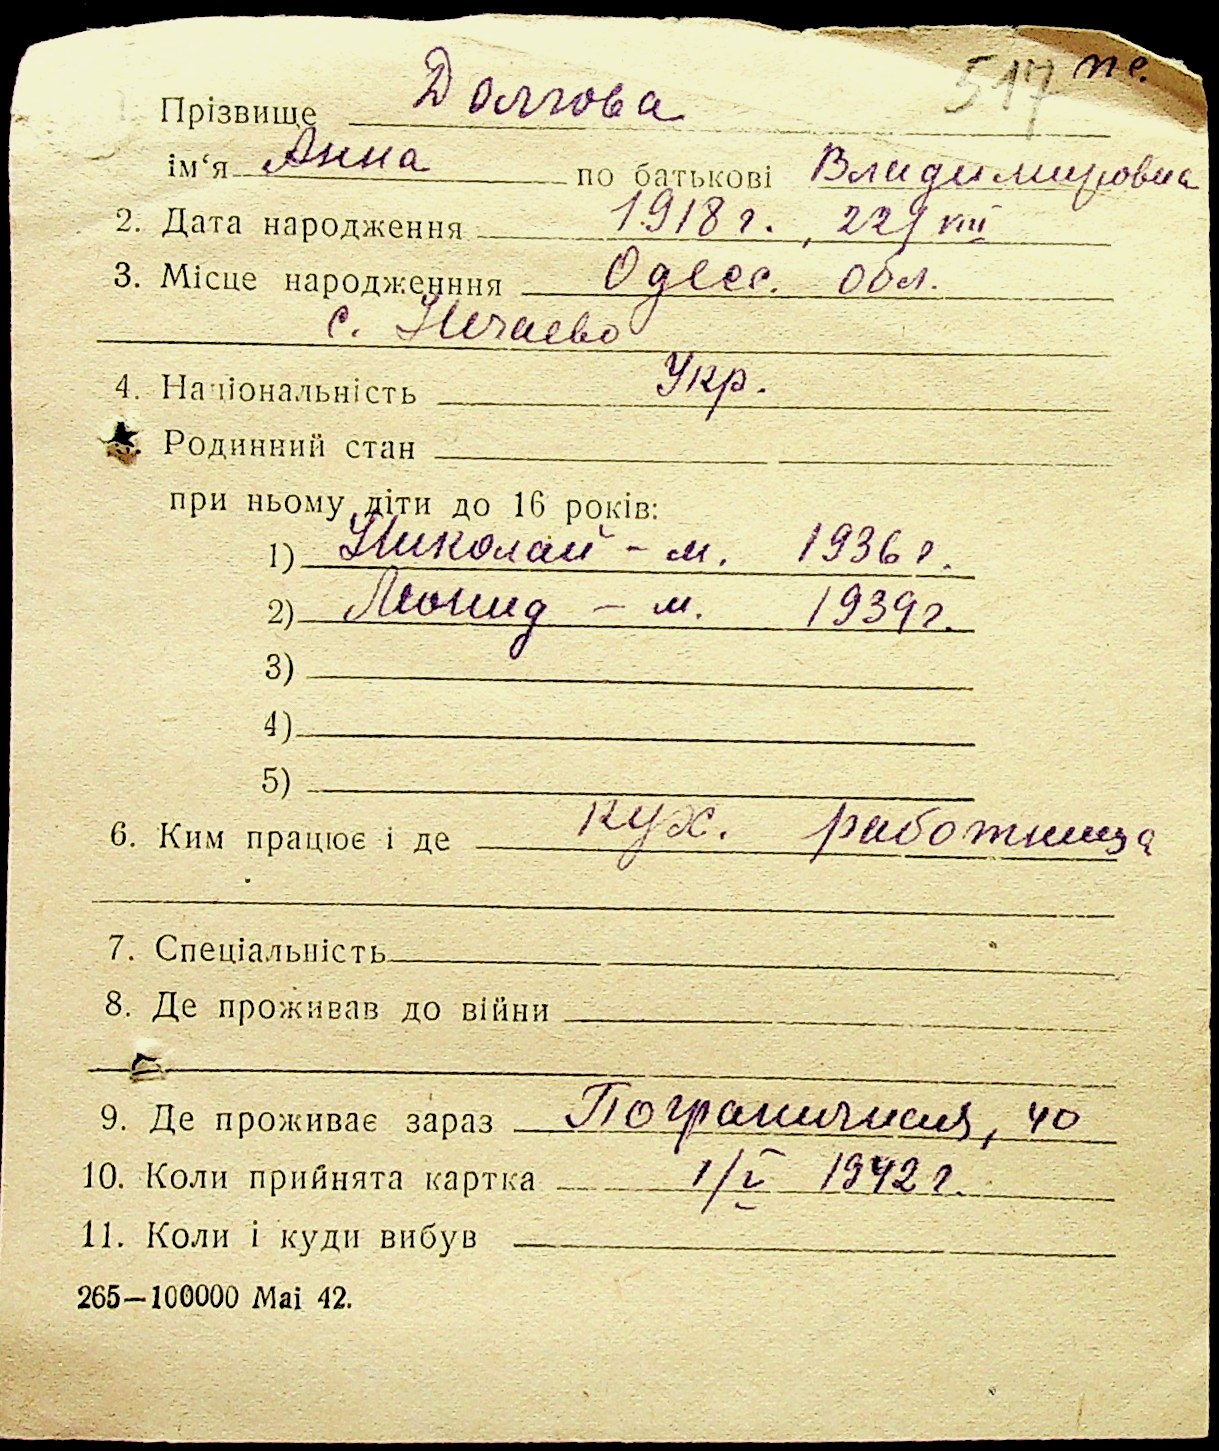 517 пе.
1. Прізвище Долгова
ім‘я Анна по батькові Владимировна
2. Дата народження 1918 г., 22/VIII
3. Місце народженння Одесс. обл.
с. Нечаево
4. Національність Укр.
5. Родинний стан
при ньому діти до 16 років:
1) Николай - м. 1936 г.
2) Леонид - м. 1939 г.
3)
4)
5)
6. Ким працює і де кух. работница
7. Спеціальність
8. Де проживав до війни
9. Де проживає зараз Пограничная, 40
10. Коли прийнята картка 1/V 1942 г.
11. Коли і куди вибув
265—100000 Mai 42.